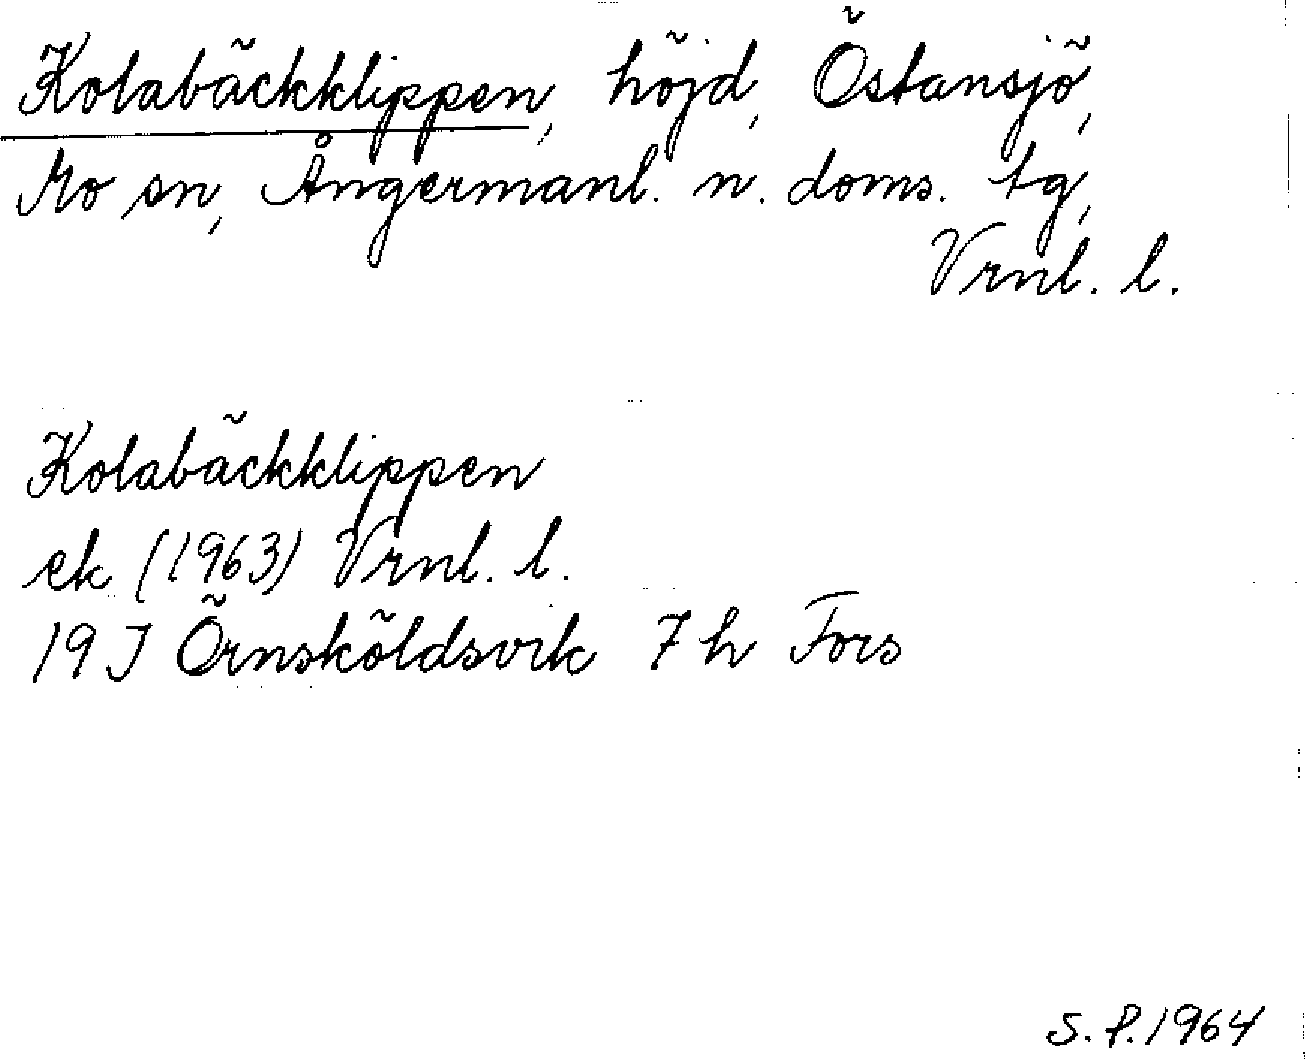 Kolabäckklippen, höjd, Östansjö,
Mo sn, Ångermanl. n. doms. tg,
Vrnl. l.
Kolabäckklippen
ek (1963) Vrnl. l.
19 J Örnsköldsvik 7 h Fors
S. P. 1964